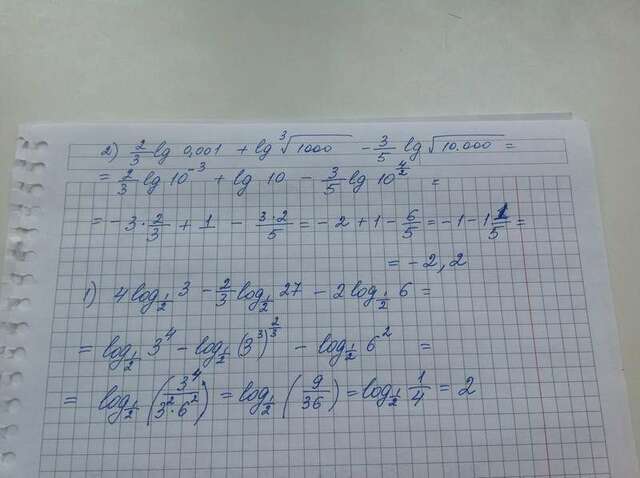 2) 2/3 lg 0,001 + lg ∛1000 - 3/5 lg √10.000 =
= 2/3 lg 10⁻³ + lg 10 - 3/5 lg 10^(4/2) =
= - 3 · 2/3 + 1 - 3·2/5 = - 2 + 1 - 6/5 = - 1 - 1 1/5 =
= - 2,2
1) 4 log_(1/2) 3 - 2/3 log_(1/2) 27 - 2 log_(1/2) 6 =
= log_(1/2) 3⁴ - log_(1/2) (3³)^(2/3) - log_(1/2) 6² =
= log_(1/2) (3⁴/(3²·6²)) = log_(1/2) (9/36) = log_(1/2) 1/4 = 2